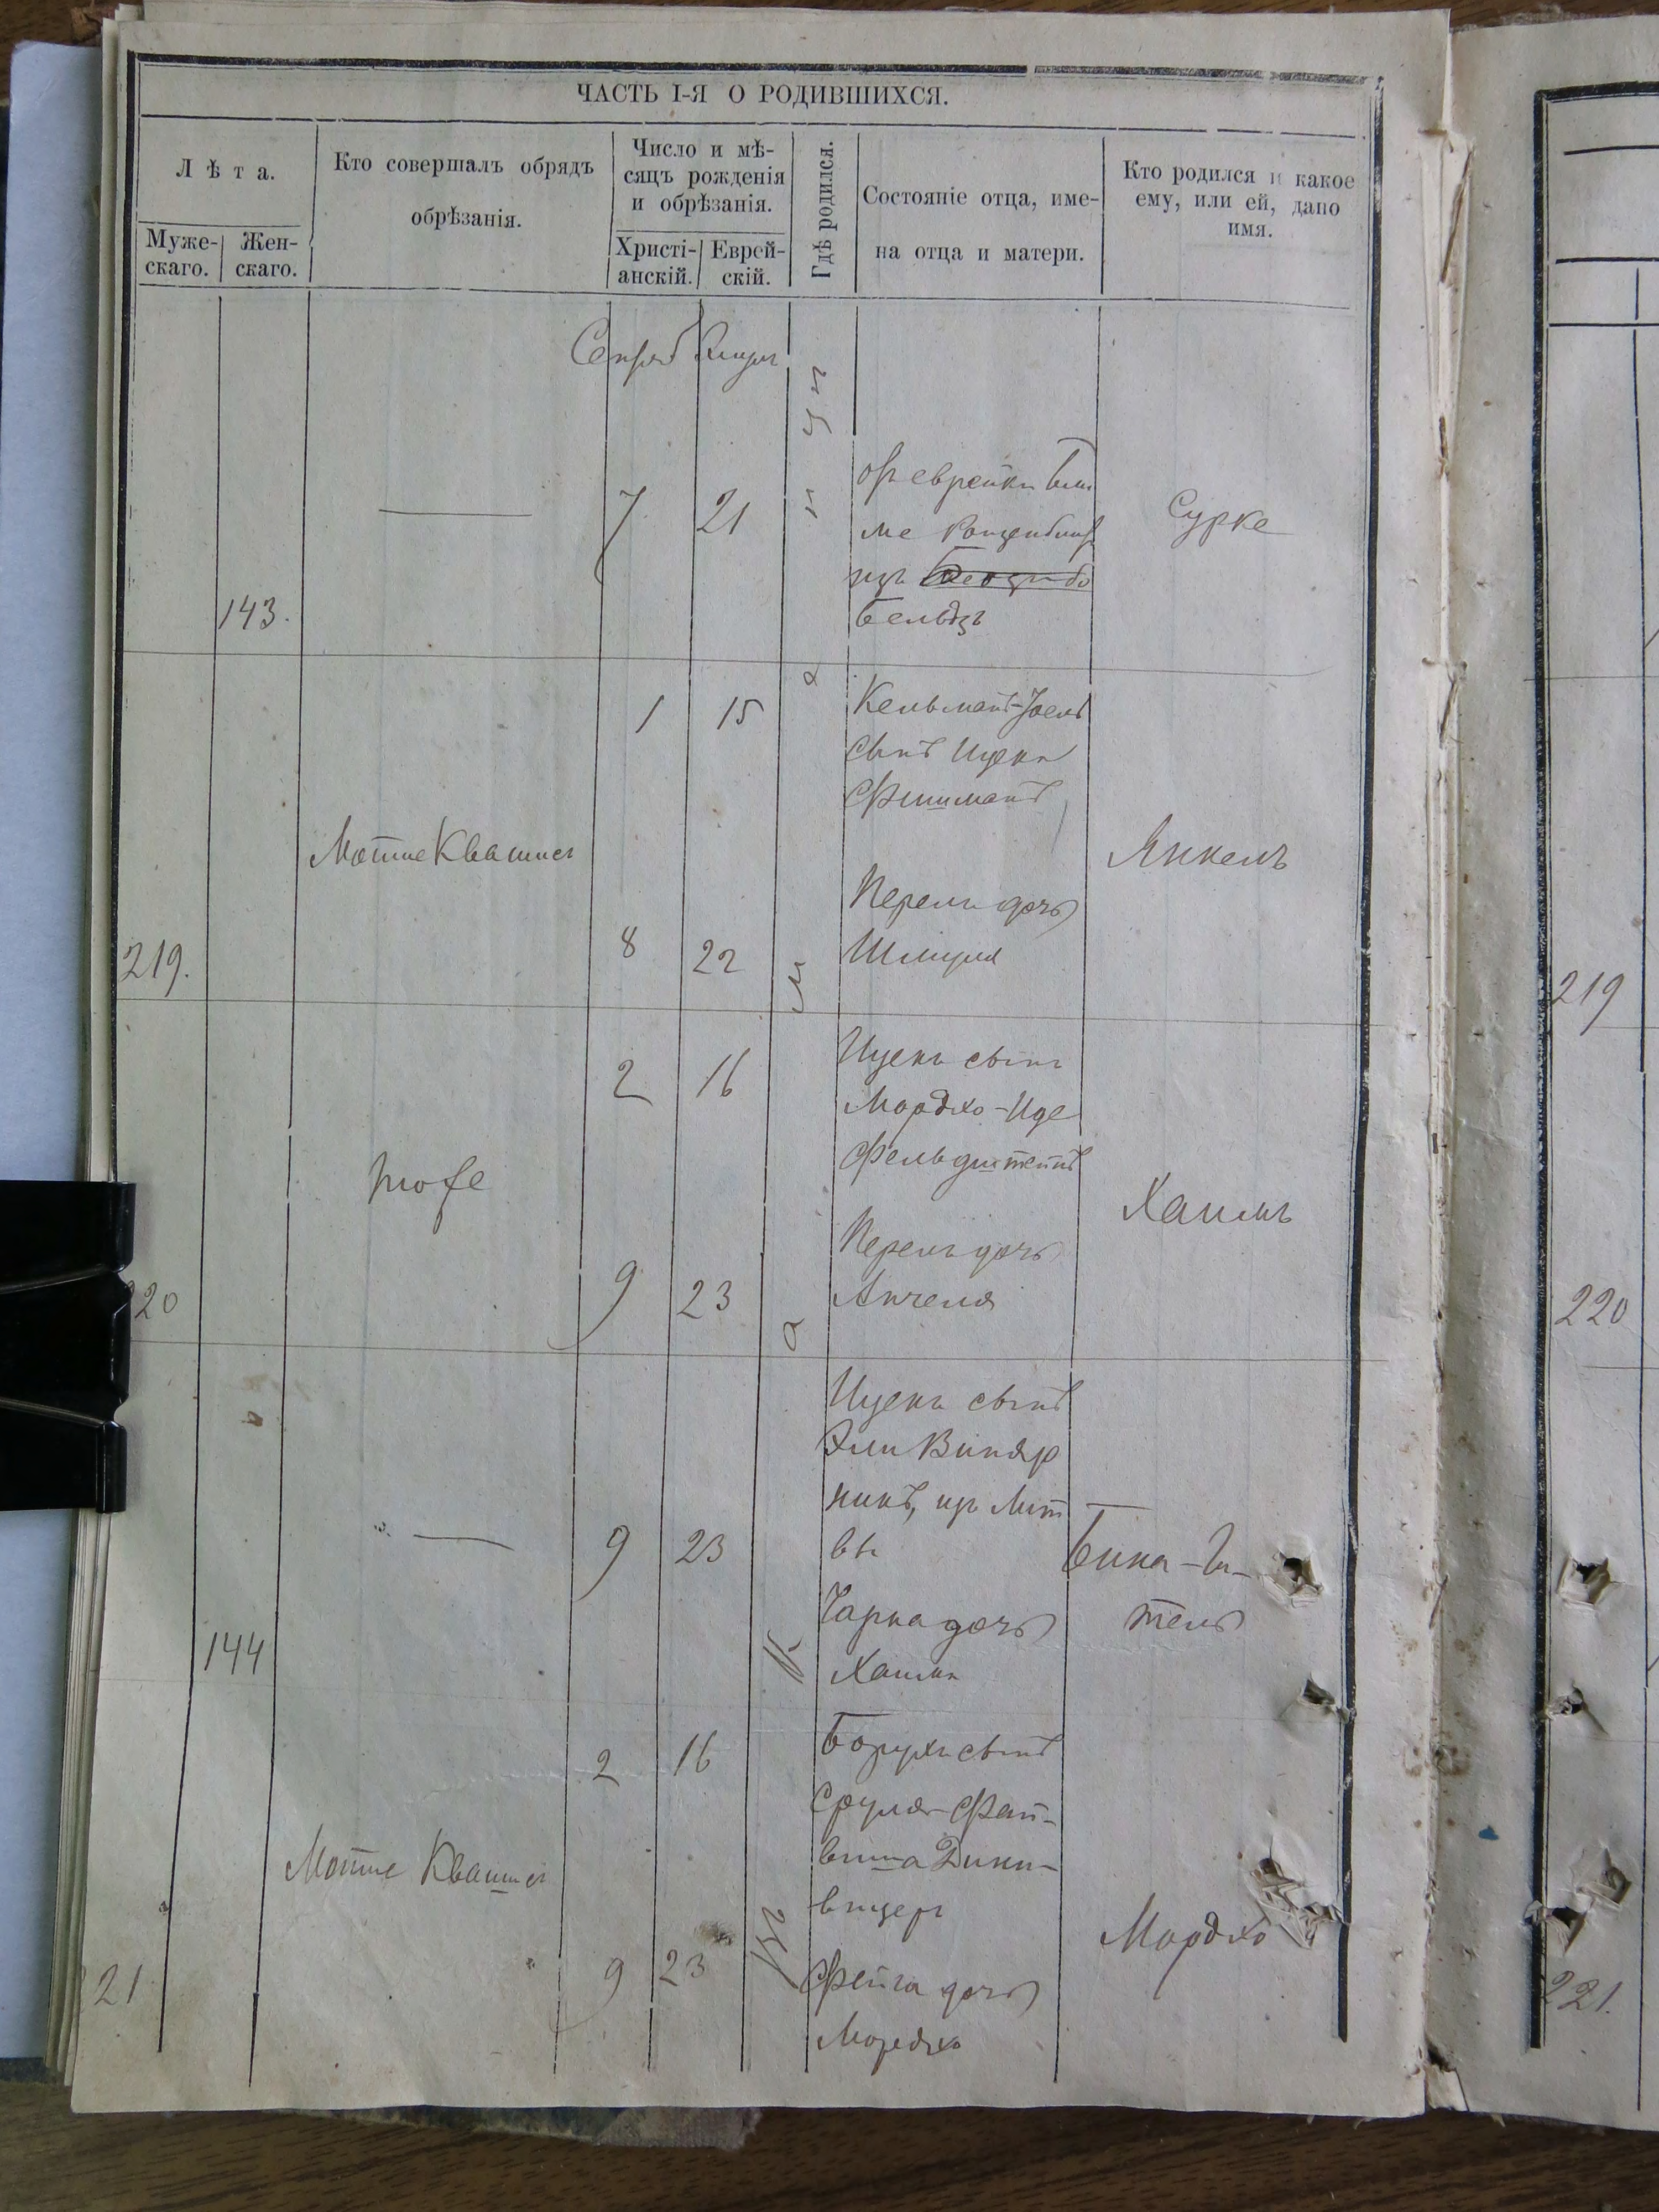 ЧАСТЬ I-Я О РОДИВШИХСЯ.
Лѣта.
Муже-
скаго.
Жен-
скаго.
Кто совершалъ обрядъ
обрѣзанія.
Число и мѣ-
сяцъ рожденія
и обрѣзанія.
Христі-
анскій.
Еврей-
скій.
Гдѣ родился.
Состояніе отца, име-
на отца и матери.
Кто родился и какое
ему, или ей, дано
имя.
143.
7 21
отъ еврейки
ме
изъ
Бельцъ
Сурке
219.
Мотте Квашнеръ
1 15
8 22
Кельманъ-Іоель
сынъ Ицека
Фишманъ
Перель дочь
Шмуля
Янкель
219
220
тоже
2 16
9 23
Ицекъ сынъ
Мордхо-Иде
Фельдштейнъ
Перель дочь
Анчеля
Хаимъ
220
144
9 23
Ицекъ сынъ
Эли Виняр
никъ, изъ Лит
вы
Чарна дочь
Хаима
Бина-Ги-
тель
221
Мотте Квашнеръ
2 16
9 23
Борухъ сынъ
Сруля-Фай-
виша
вицеръ
Фейга дочь
Мордхо
Мордхо
221.